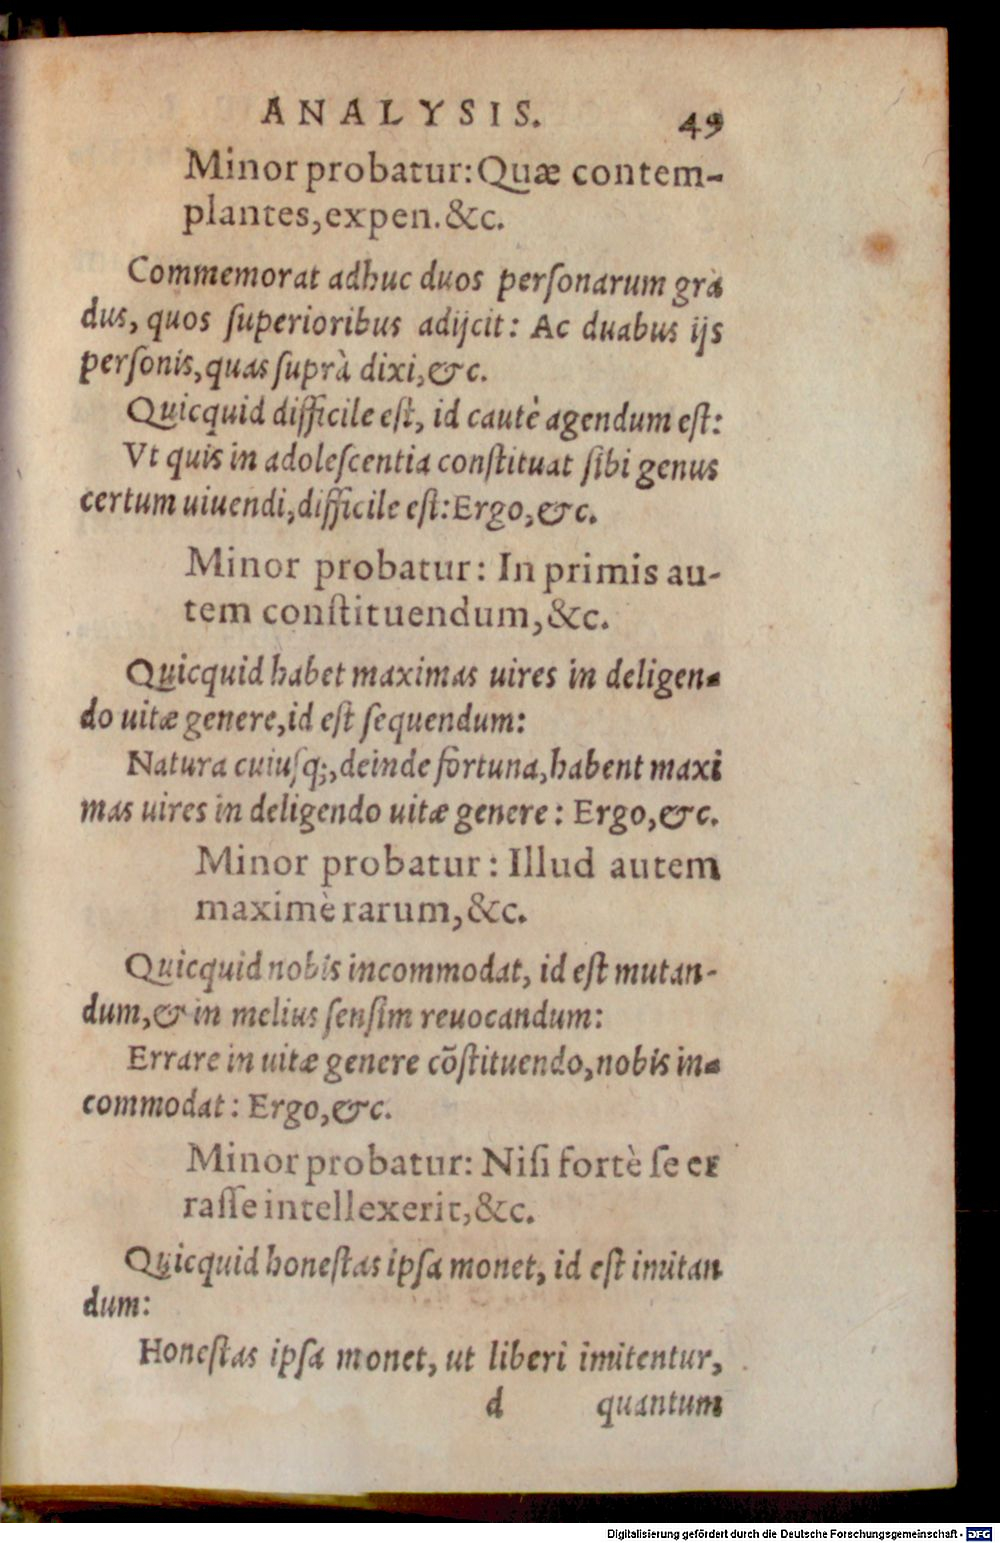 ANALYSIS. 49
Minor probatur: Quæ contem-
plantes, expen. &c.
Commemorat adhuc duos perſonarum grà
dus, quos ſuperioribus adijcit: Ac duabus ijs
perſonis, quas ſuprà dixi, &c.
Quicquid difficile eſt, id cautè agendum eſt:
Vt quis in adoleſcentia conſtituat ſibi genus
certum uiuendi, difficile eſt: Ergo, &c.
Minor probatur: In primis au-
tem conſtituendum, &c.
Quicquid habet maximas uires in deligen-
do uitæ genere, id eſt ſequendum:
Natura cuiuſq;, deinde fortuna, habent maxi
mas uires in deligendo uitæ genere: Ergo, &c.
Minor probatur: Illud autem
maximè rarum, &c.
Quicquid nobis incommodat, id eſt mutan-
dum, & in melius ſenſim reuocandum:
Errare in uitæ genere cõſtituendo, nobis in-
commodat: Ergo, &c.
Minor probatur: Niſi fortè ſe er
raſſe intellexerit, &c.
Quicquid honeſtas ipſa monet, id eſt imitan
dum:
Honeſtas ipſa monet, ut liberi imitentur,
d quantum
Digitalisierung gefördert durch die Deutsche Forschungsgemeinschaft - DFG